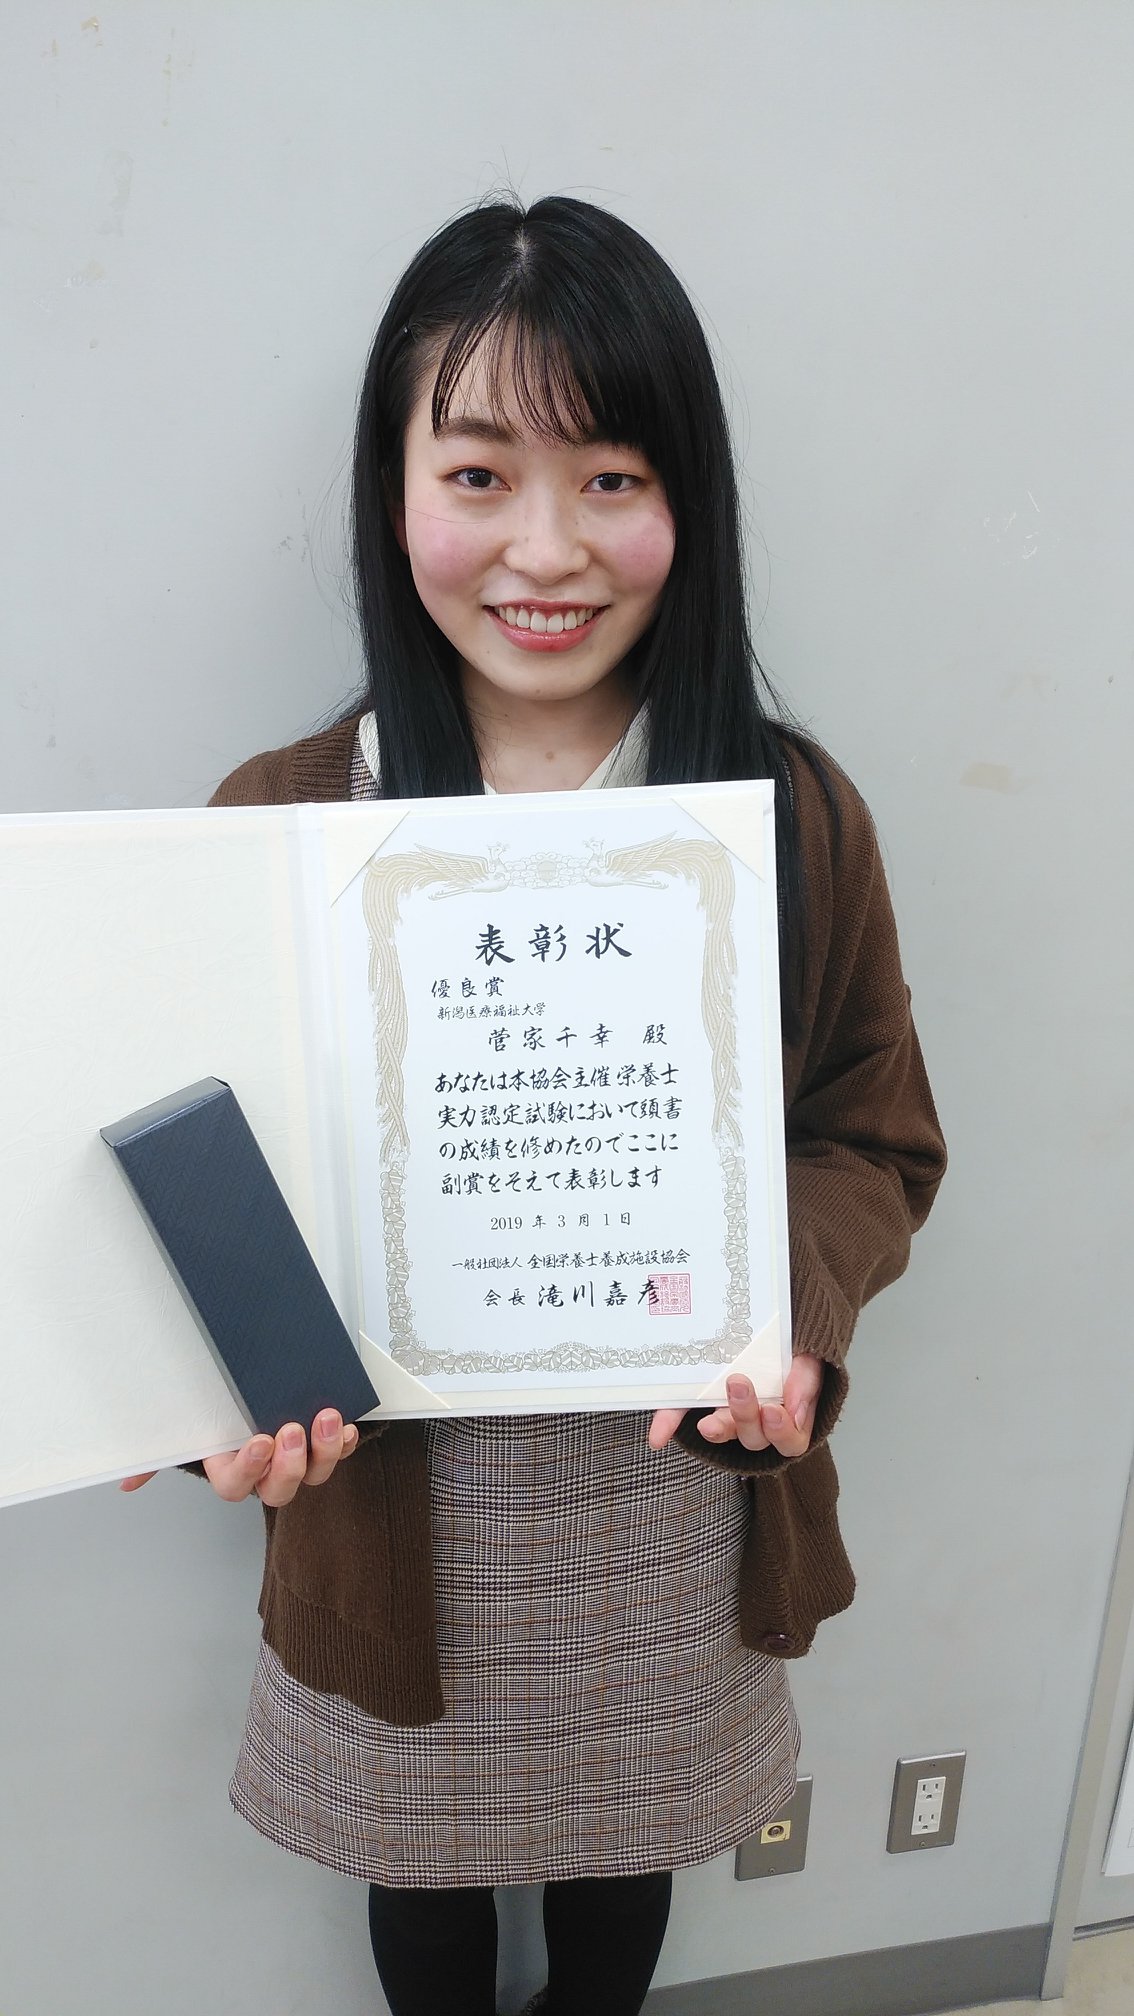 表彰状
優良賞
新潟医療福祉大学
菅家千幸 殿
あなたは本協会主催栄養士
実力認定試験において頭書
の成績を修めたのでここに
副賞をそえて表彰します
2019 年 3 月 1 日
一般社団法人 全国栄養士養成施設協会
会長 滝川嘉彦